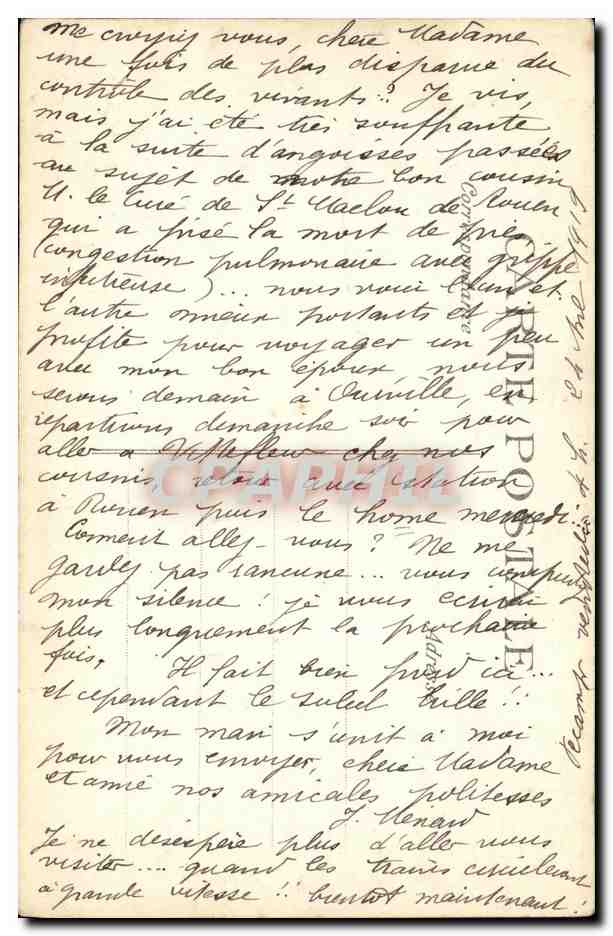 me croyiez vous, chère Madame
une fois de plus disparue du
contrôle des vivants? Je vis,
mais j'ai été très souffrante,
à la suite d'angoisses passées
au sujet de notre bon cousin
M. le Curé de St Maclou de Rouen
qui a frisé la mort de près
(congestion pulmonaire avec grippe
infectieuse)... nous voici l'un et
l'autre mieux portants et j'en
profite pour voyager un peu
avec mon bon époux, nous
serons demain à Ourville, en
repartirons dimanche soir pour
aller à Harfleur chez nos
cousins, retour avec station
à Rouen puis le home mercredi..
Comment allez-vous? Ne me
gardez pas rancune... vous
mon silence! je vous écrirai
plus longuement la prochaine
fois. Il fait bien froid ici...
et cependant le soleil brille!!
Mon mari s'unit à moi
pour vous envoyer, chère Madame
et amie nos amicales politesses
J. Menard
Je ne désespère plus d'aller vous
visiter.... quand les trains circuleront
à grande vitesse!! bientôt maintenant!
Fécamp vendredi 4 h. 24 1919
CARTE POSTALE
Correspondance
Adresse
CPAPHIL